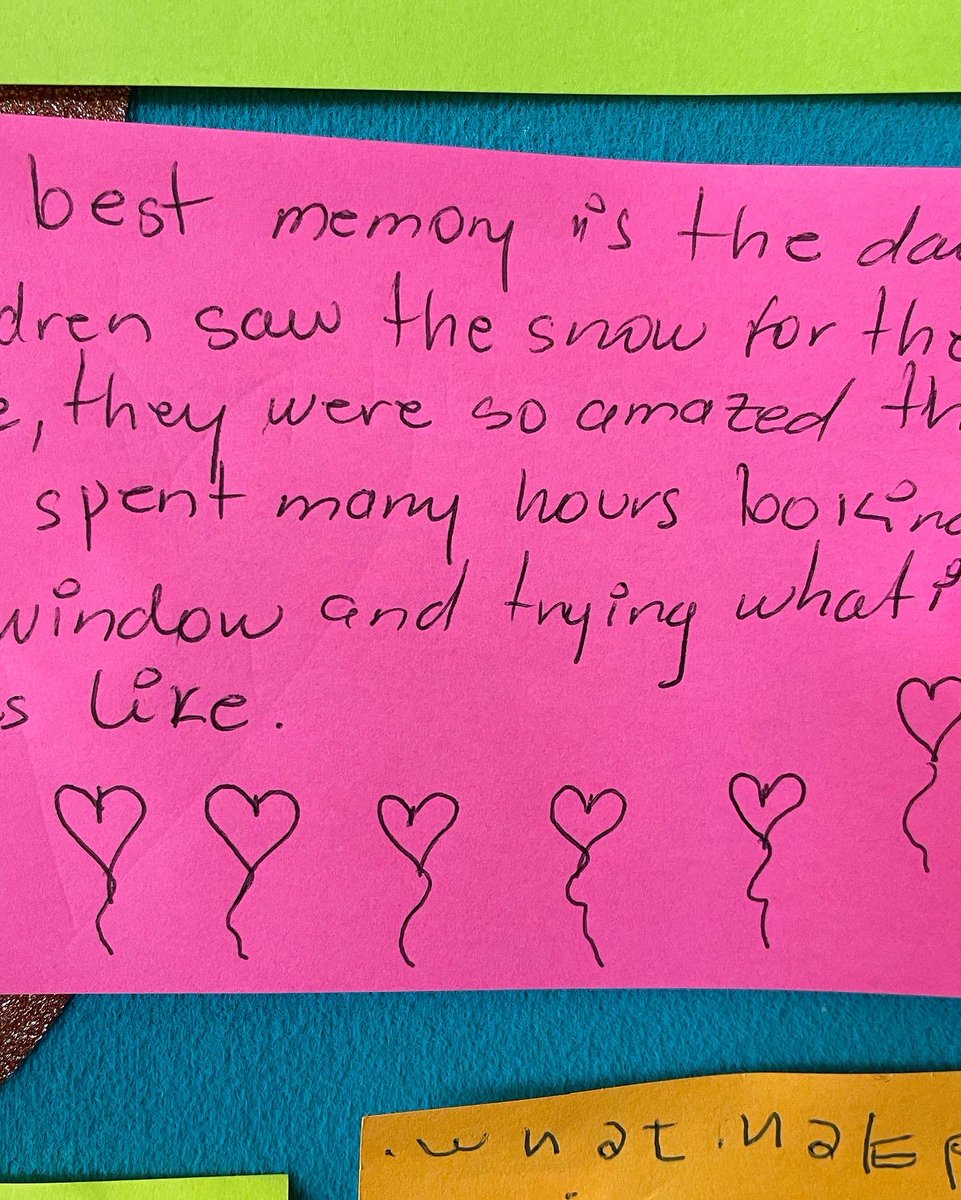 best memory is the da
dren saw the snow for the
e, they were so amazed th
spent many hours looking
window and trying what i
s like.
what